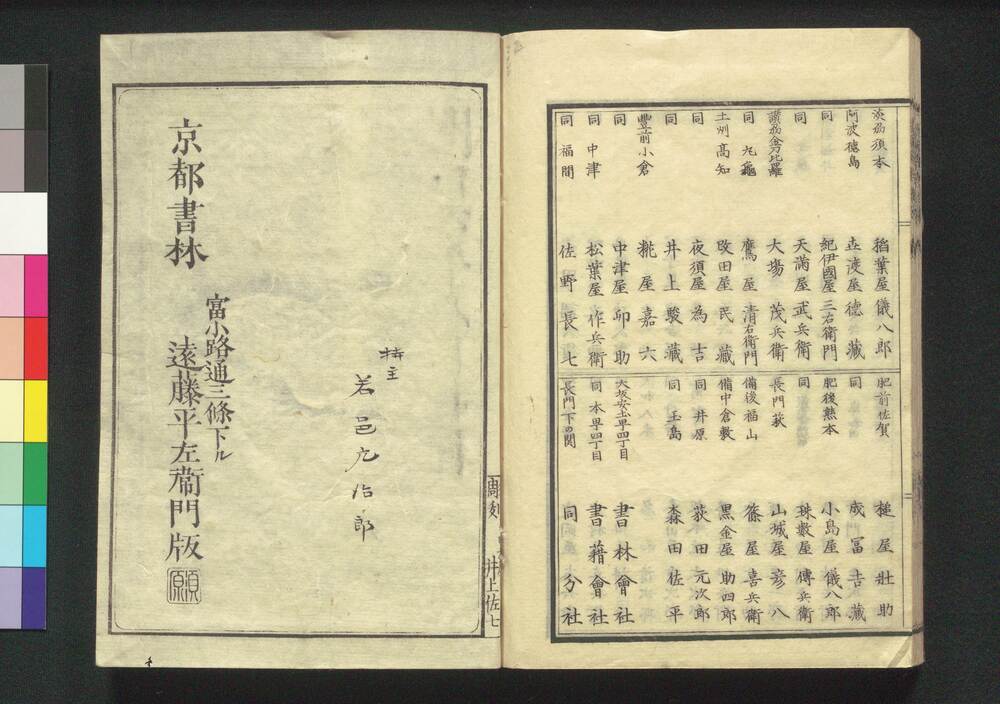 淡刕須本 稲葉屋儀八郎
阿波徳島 立渡屋徳藏
同 紀伊國屋三右衛門
同 天満屋武兵衛
讃刕金刀比羅 大塲茂兵衛
同 丸亀 鷹屋清右衛門
土州高知 改田屋民藏
同 夜須屋為吉
同 井上駿藏
豊前小倉 糀屋嘉六
同 中津屋卯助
同 中津 松葉屋作兵衛
同 福間 佐野長七
肥前佐賀 槌屋壯助
同 成冨吉藏
肥後熊本 小島屋儀八郎
同 珠數屋傳兵衛
長門萩 山城屋彦八
備後福山 篠屋喜兵衛
備中倉敷 黒金屋助四郎
同 井原 荻田元次郎
同 玉島 森田佐平
大坂安土早四丁目 書林會社
同 本早四丁目 書藉會社
長門下の関 同分社
彫刻 井上佐七
持主
若邑
治郎
富小路通三條下ル
京都書林 遠藤平左衛門版
須原